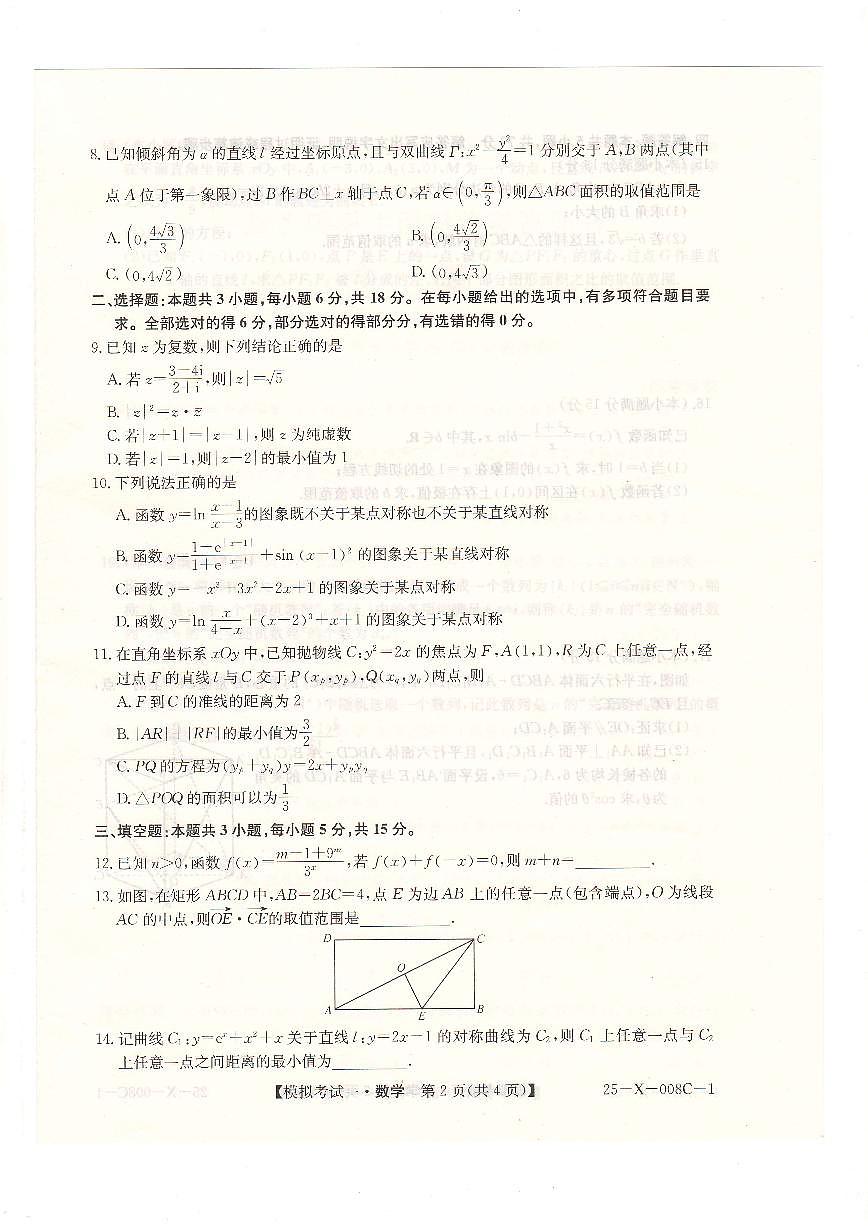 8. 已知倾斜角为α的直线l经过坐标原点,且与双曲线Γ:x²-y²/4=1分别交于A,B两点(其中
点A位于第一象限),过B作BC⊥x轴于点C,若α∈(0,π/3),则△ABC面积的取值范围是
A. (0,4√3/3)
B. (0,4√2/3)
C. (0,4√2)
D. (0,4√3)
二、选择题:本题共3小题,每小题6分,共18分。在每小题给出的选项中,有多项符合题目要
求。全部选对的得6分,部分选对的得部分分,有选错的得0分。
9. 已知z为复数,则下列结论正确的是
A. 若z=(3-4i)/(2+i),则|z|=√5
B. |z|²=z·z̄
C. 若|z+1|=|z-1|,则z为纯虚数
D. 若|z|=1,则|z-2|的最小值为1
10. 下列说法正确的是
A. 函数y=ln (x-1)/(x-3)的图象既不关于某点对称也不关于某直线对称
B. 函数y=(1-e^|x-1|)/(1+e^|x-1|)+sin(x-1)²的图象关于某直线对称
C. 函数y=-x³+3x²-2x+1的图象关于某点对称
D. 函数y=ln x/(4-x)+(x-2)³+x+1的图象关于某点对称
11. 在直角坐标系xOy中,已知抛物线C:y²=2x的焦点为F,A(1,1),R为C上任意一点,经
过点F的直线l与C交于P(xₚ,yₚ),Q(x_q,y_q)两点,则
A. F到C的准线的距离为2
B. |AR|+|RF|的最小值为3/2
C. PQ的方程为(yₚ+y_q)y=2x+yₚy_q
D. △POQ的面积可以为1/3
三、填空题:本题共3小题,每小题5分,共15分。
12. 已知n>0,函数f(x)=(m-1+9^nx)/3^x,若f(x)+f(-x)=0,则m+n=________.
13. 如图,在矩形ABCD中,AB=2BC=4,点E为边AB上的任意一点(包含端点),O为线段
AC的中点,则OE·CE的取值范围是________.
D
C
O
A
E
B
14. 记曲线C₁:y=eˣ-x²+x关于直线l:y=2x-1的对称曲线为C₂,则C₁上任意一点与C₂
上任意一点之间距离的最小值为________.
【模拟考试一·数学 第2页(共4页)】
25-X-008C-1